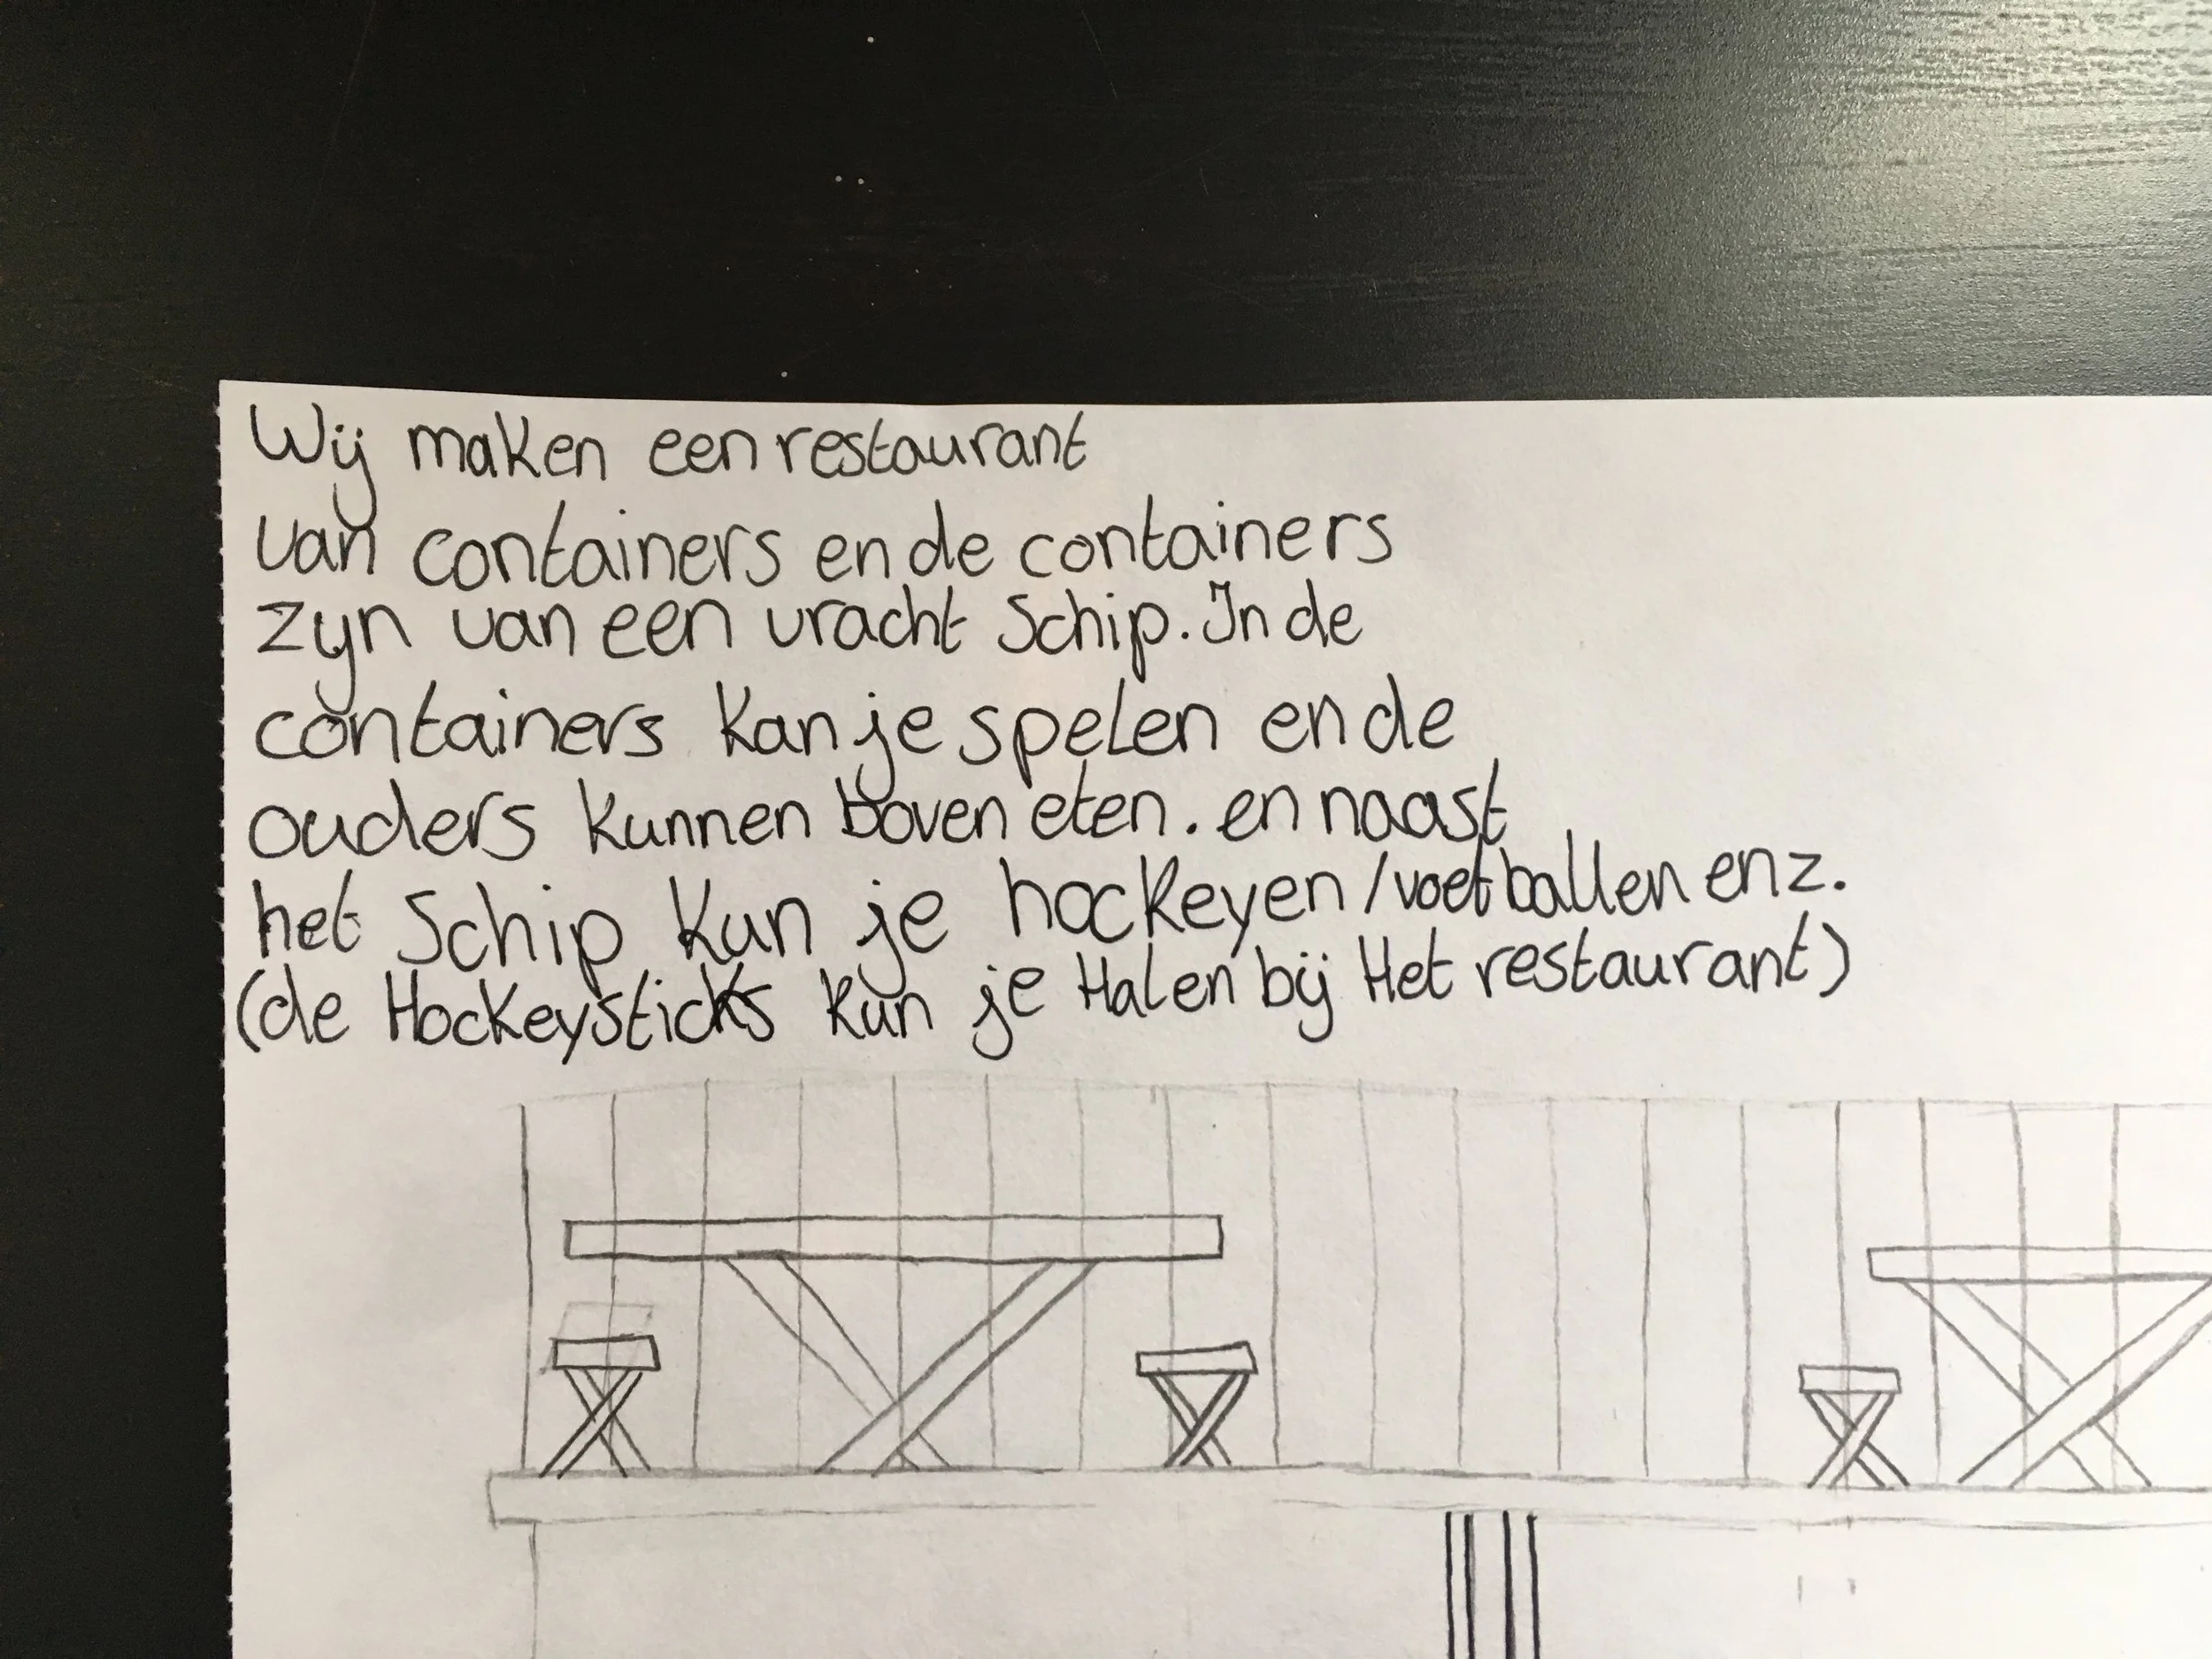 Wij maken een restaurant
van containers en de containers
zijn van een vracht schip. In de
containers kan je spelen en de
ouders kunnen boven eten. en naast
het schip kun je hockeyen/voetballen enz.
(de Hockeysticks kun je Halen bij Het restaurant)